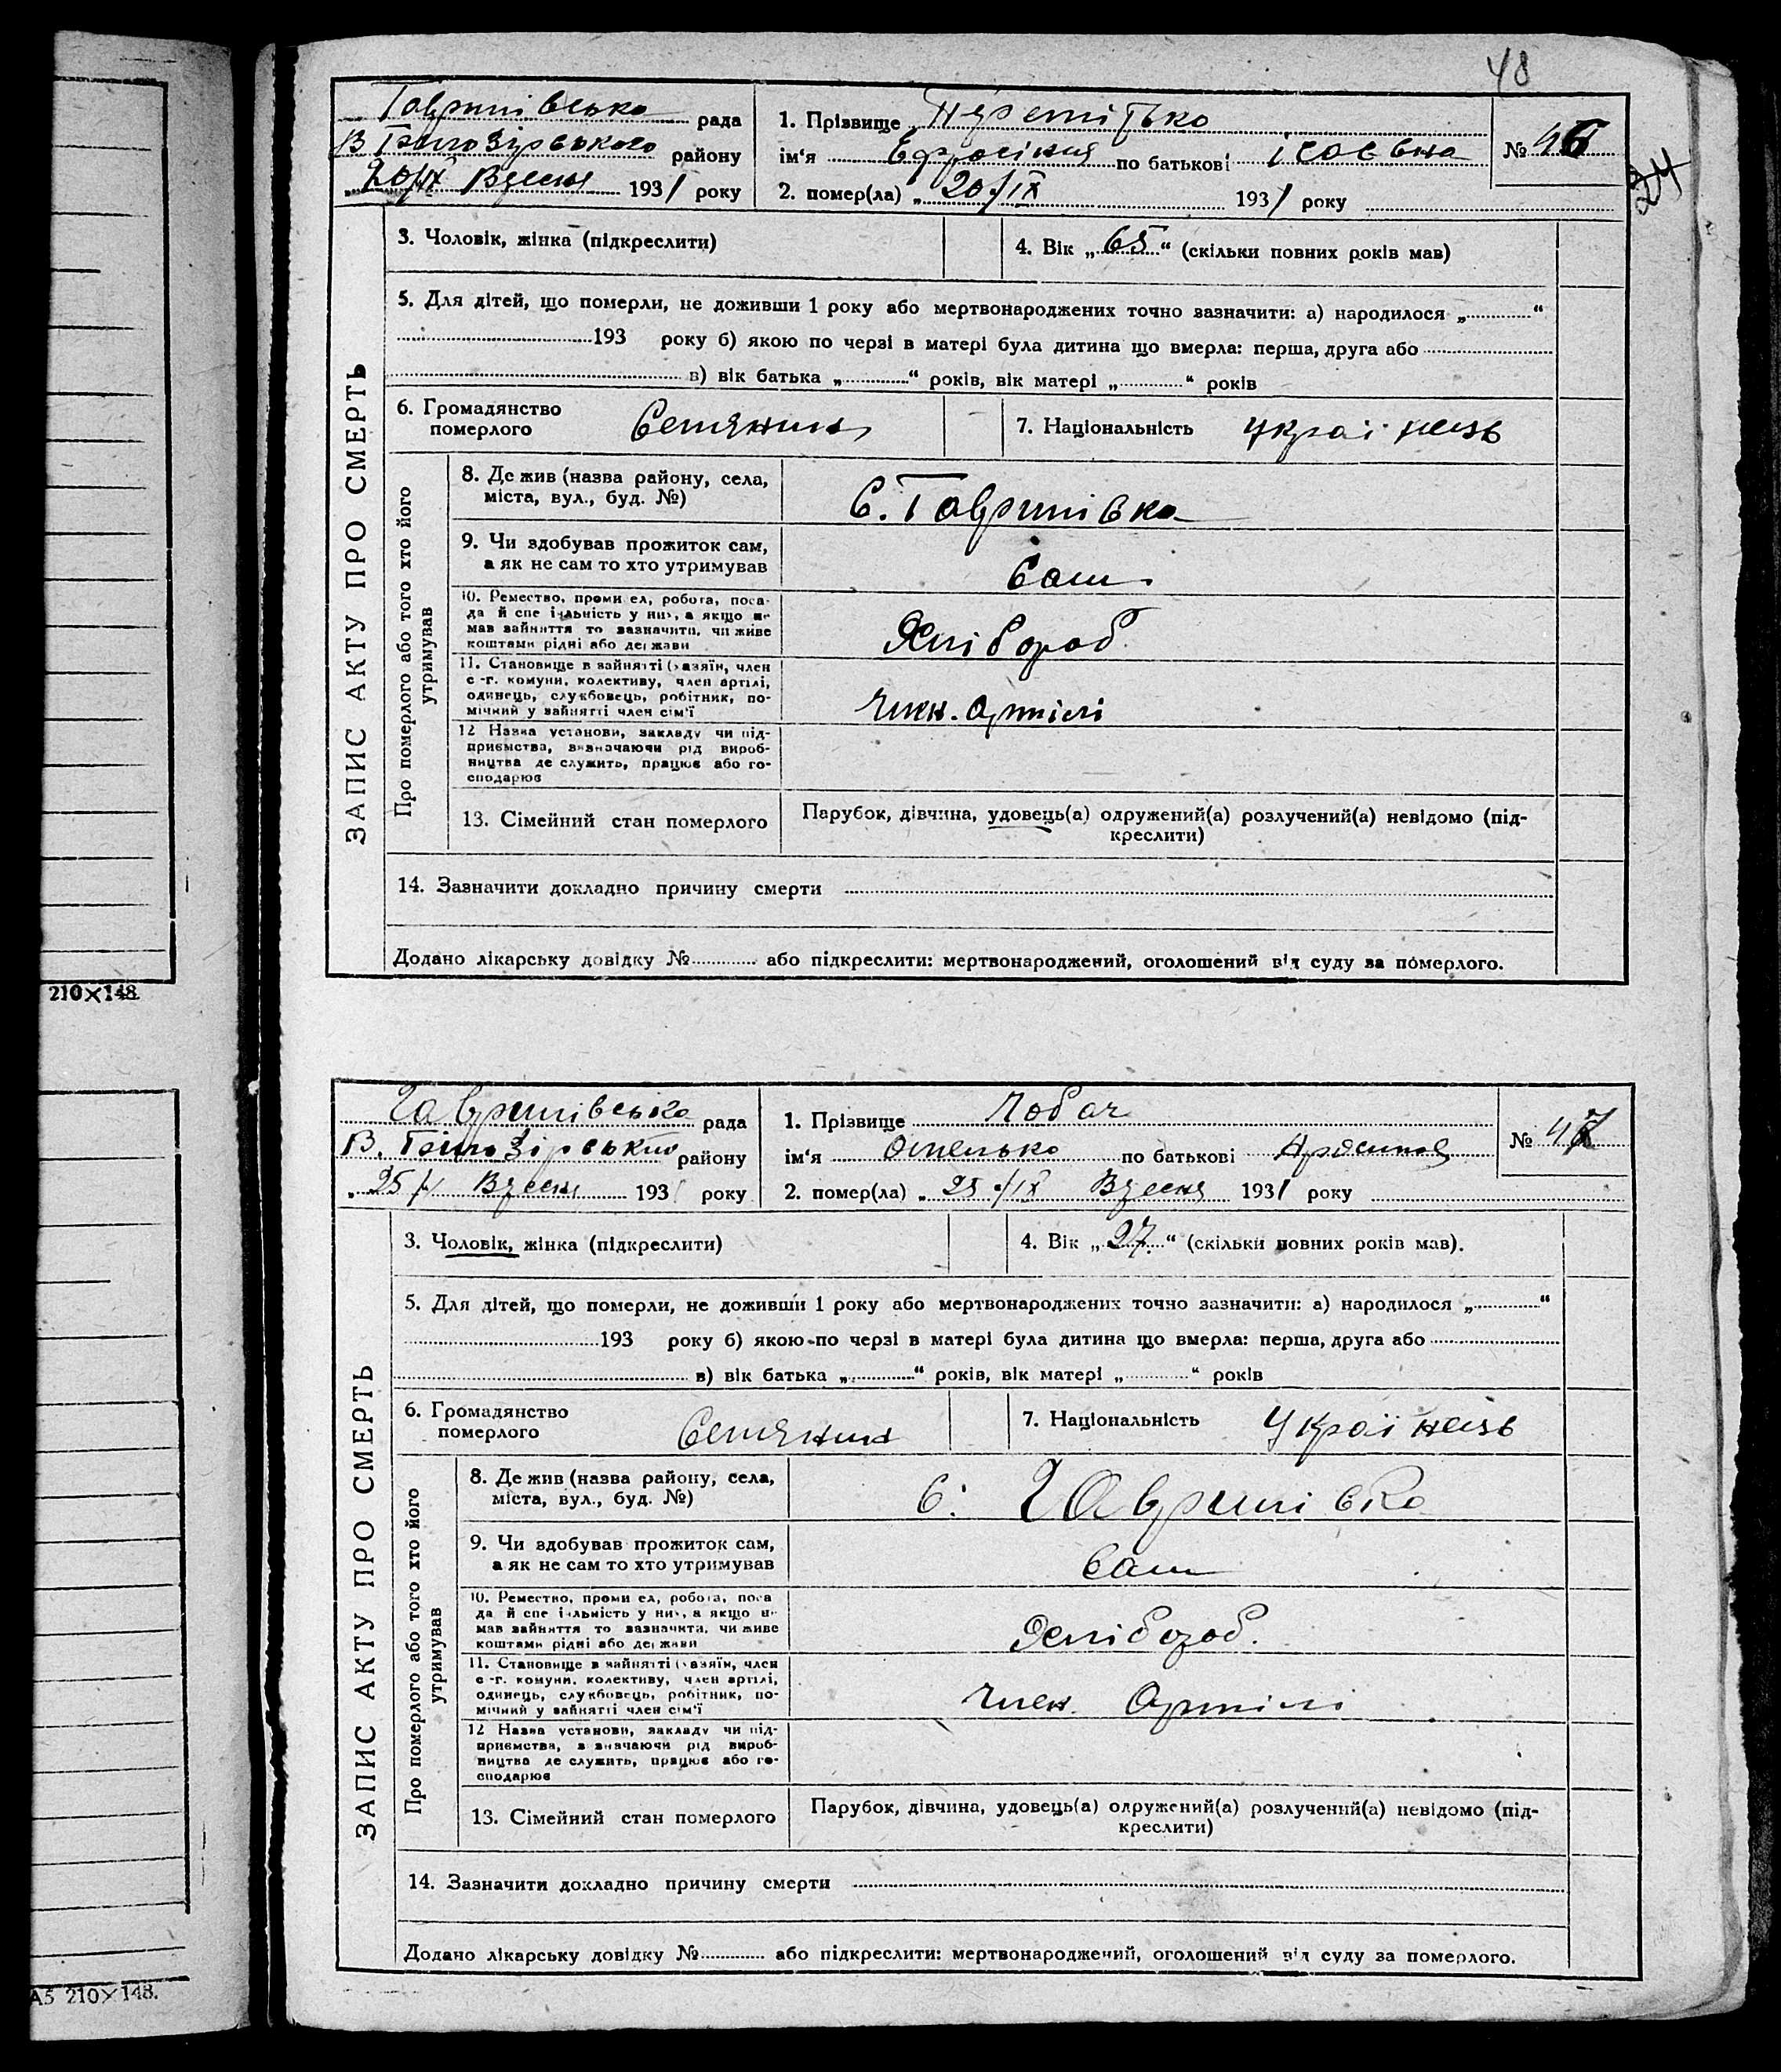 48
Гаврилівська рада
В Білозірського району
„20/IX Вересня 1931 року
1. Прізвище Перетятько
ім‘я Єфросінія по батькові Ісаєвна
2. помер(ла) „20/IX 1931 року
№ 46
24
ЗАПИС АКТУ ПРО СМЕРТЬ
3. Чоловік, жінка (підкреслити)
4. Вік „65“ (скільки повних років мав)
5. Для дітей, що померли, не доживши 1 року або мертвонароджених точно зазначити: а) народилося „ “
193 року б) якою по черзі в матері була дитина що вмерла: перша, друга або
в) вік батька „ “ років, вік матері „ “ років
6. Громадянство
померлого
Селянин
7. Національність Українець
Про померлого або того хто його
утримував
8. Де жив (назва району, села,
міста, вул., буд. №)
С. Гаврилівка
9. Чи здобував прожиток сам,
а як не сам то хто утримував
Сам
10. Ремество, проми ел, робота, поса-
да й спе іяльність у ни , а якщо не
мав зайняття то зазначити, чи живе
коштами рідні або держави
Хлібороб
11. Становище в зайнятті (хазяїн, член
с-г. комуни, колективу, член артілі,
одинець, службовець, робітник, по-
мічний у зайнятті член сім‘ї
Член. Артілі
12 Назва установи, закладу чи під-
приємства, визначаючи рід вироб-
ництва де служить, працює або го-
сподарює
13. Сімейний стан померлого
Парубок, дівчина, удовець(а) одружений(а) розлучений(а) невідомо (під-
креслити)
14. Зазначити докладно причину смерти
Додано лікарську довідку № або підкреслити: мертвонароджений, оголошений від суду за померлого.
210×148
Гаврилівська рада
В. Білозірський району
„25/ Вересня 193 року
1. Прізвище Лобач
ім‘я Омелько по батькові
2. помер(ла) „25/IX Вересня 1931 року
№ 47
ЗАПИС АКТУ ПРО СМЕРТЬ
3. Чоловік, жінка (підкреслити)
4. Вік „27“ (скільки повних років мав).
5. Для дітей, що померли, не доживши 1 року або мертвонароджених точно зазначити: а) народилося „ “
193 року б) якою по черзі в матері була дитина що вмерла: перша, друга або
в) вік батька „ “ років, вік матері „ “ років
6. Громадянство
померлого
Селянин
7. Національність Українець
Про померлого або того хто його
утримував
8. Де жив (назва району, села,
міста, вул., буд. №)
С. Гаврилівка
9. Чи здобував прожиток сам,
а як не сам то хто утримував
Сам
10. Ремество, проми ел, робота, поса
да й спе іяльність у ни , а якщо не
мав зайняття то зазначити, чи живе
коштами рідні або держави
Хлібороб.
11. Становище в зайнятті (хазяїн, член
с-г. комуни, колективу, член артілі,
одинець, службовець, робітник, по-
мічний у зайнятті член сім‘ї
Член. Артілі
12 Назва установи, закладу чи під-
приємства, визначаючи рід вироб-
ництва де служить, працює або го-
сподарює
13. Сімейний стан померлого
Парубок, дівчина, удовець(а) одружений(а) розлучений(а) невідомо (під-
креслити)
14. Зазначити докладно причину смерти
Додано лікарську довідку № або підкреслити: мертвонароджений, оголошений від суду за померлого.
А5 210×148.